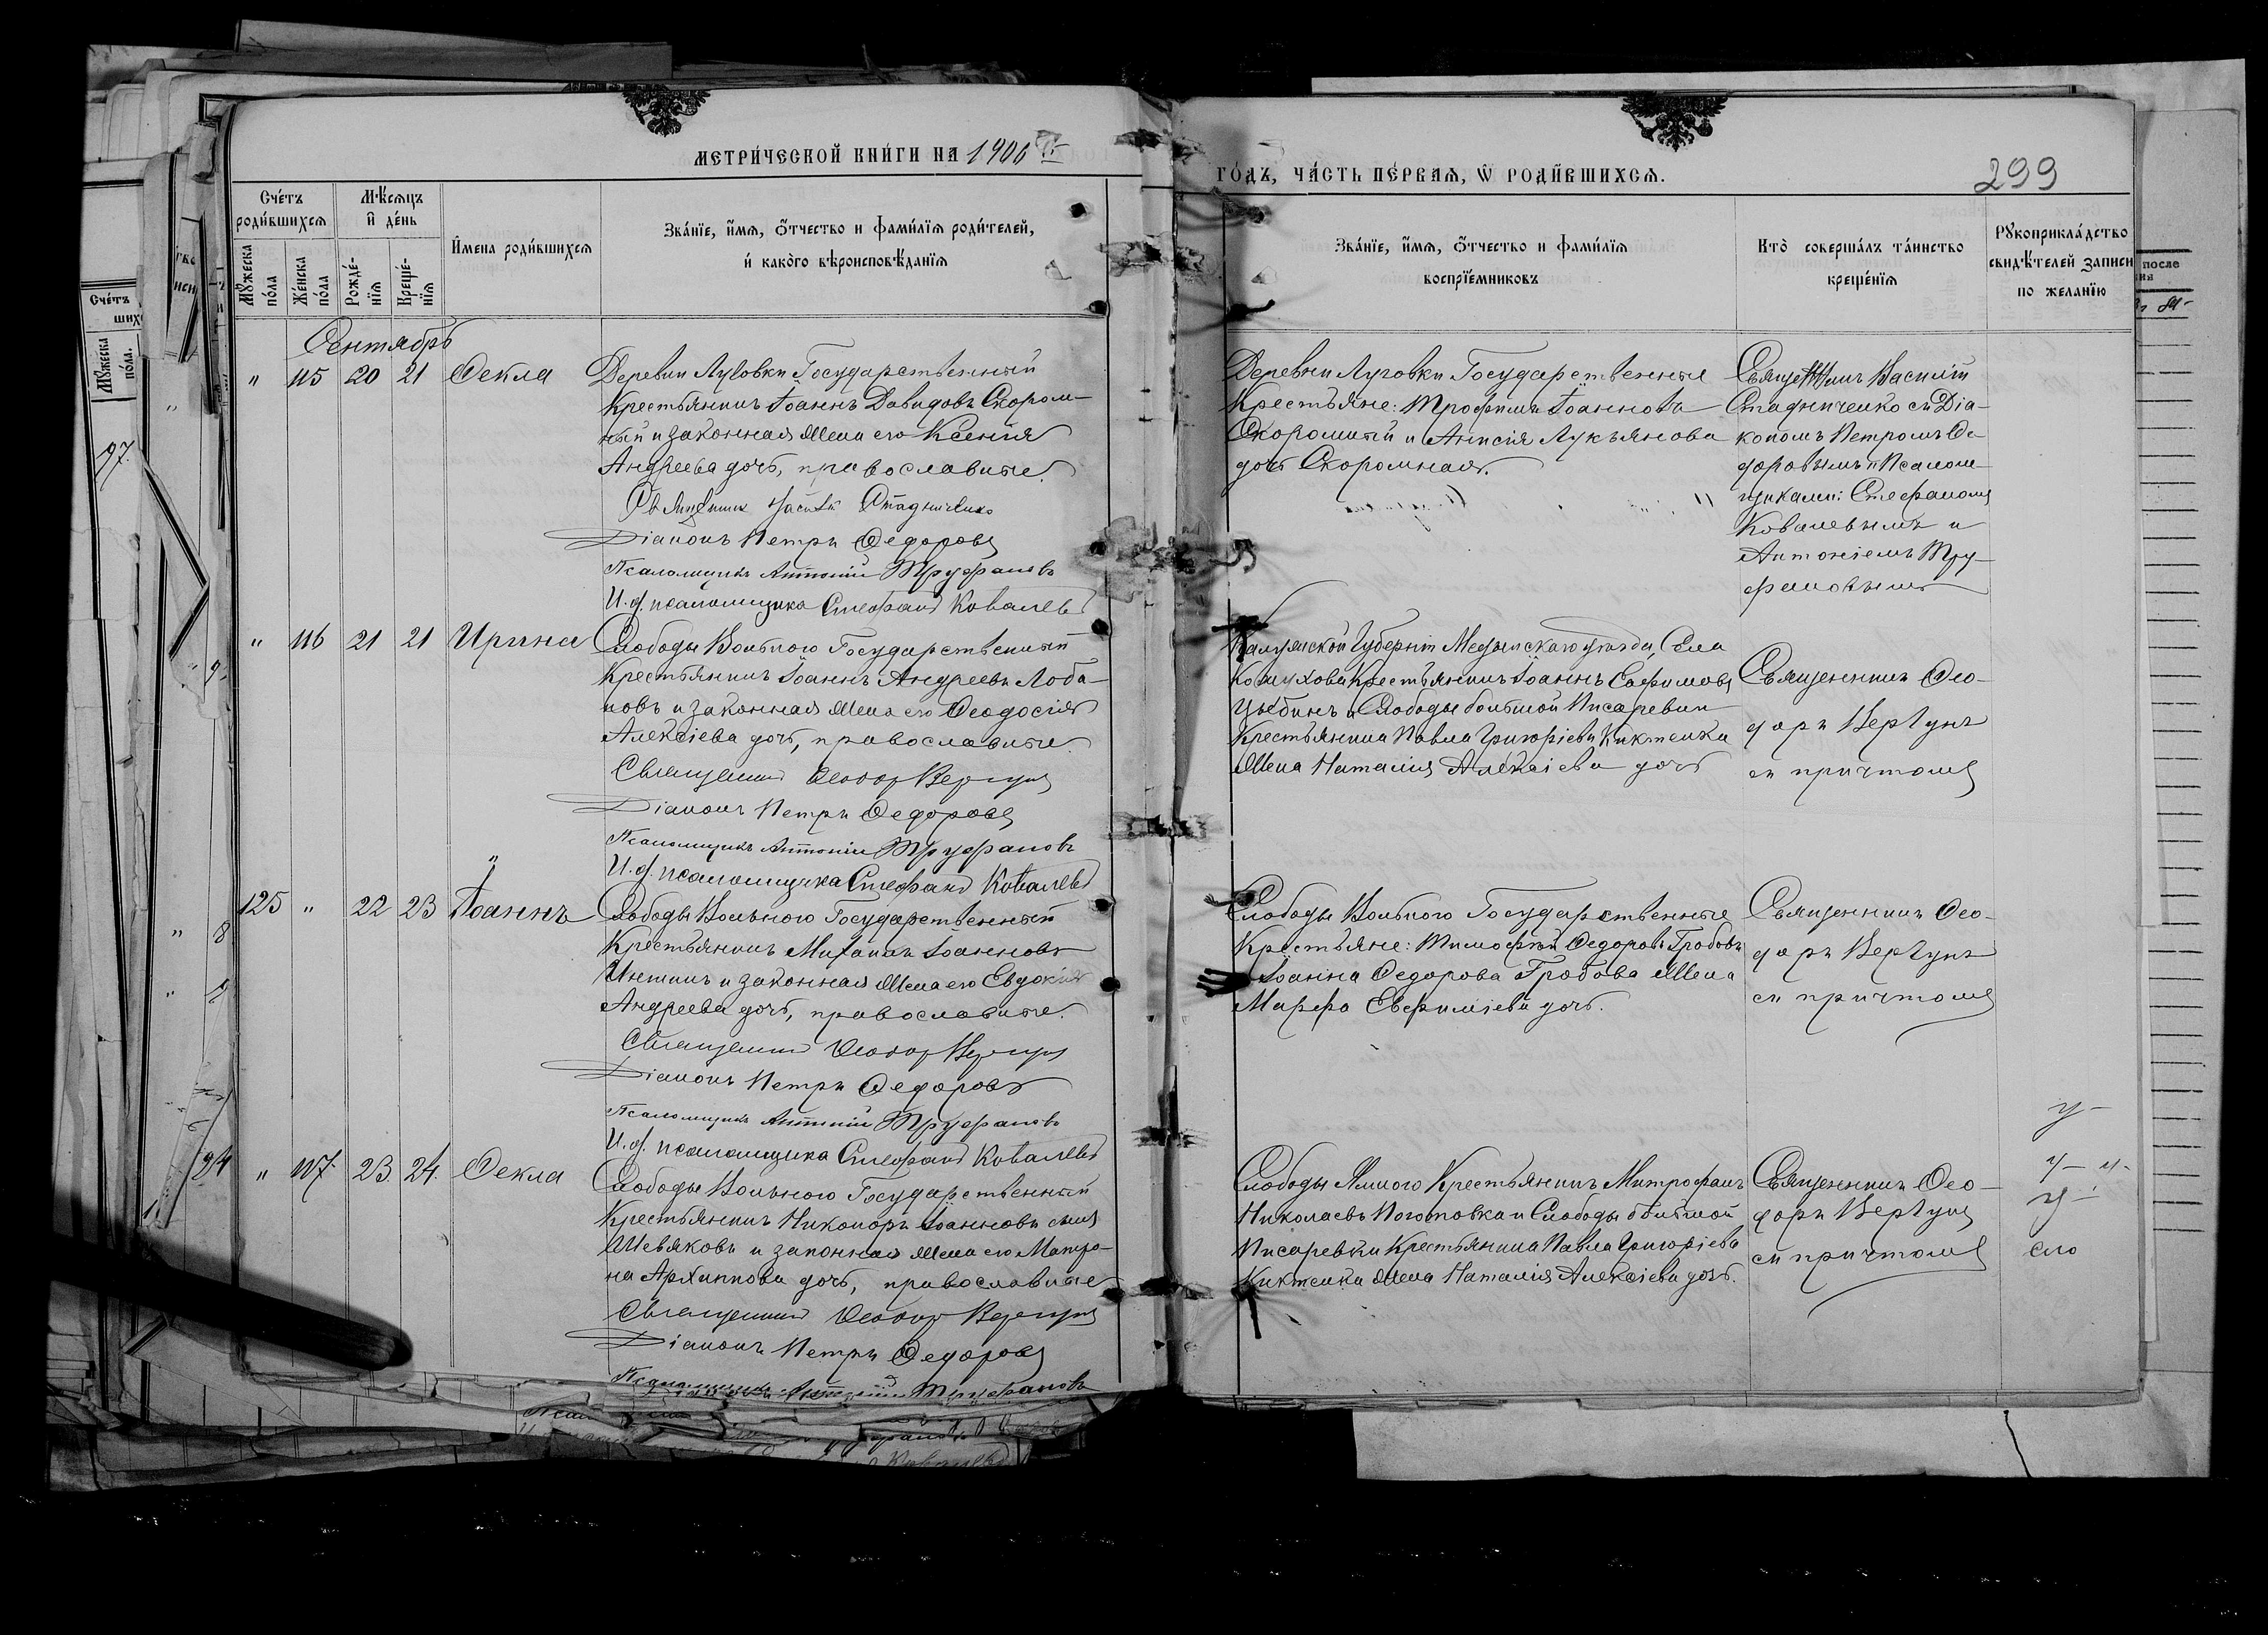 МЕТРИ́ЧЕСКОЙ КНИ́ГИ НА 1906 й
ГО́ДЪ, ЧА́СТЬ ПЕ́РВАѦ, Ѡ РОДИ́ВШИХСѦ.
299
Сче́тъ роди́вшихсѧ
Мѣ́сѧцъ и де́нь
Мꙋ́жеска по́ла
Же́нска по́ла
Рожде́нїѧ
Креще́нїѧ
И́мена роди́вшихсѧ
Зва́нїе, и́мѧ, ѻ́тчество и фами́лїѧ роди́телей,
и како́го вѣроисповѣ́данїѧ
Зва́нїе, и́мѧ, ѻ́тчество и фами́лїѧ
воспрїе́мниковъ
Кто̀ соверша́лъ та́инство
креще́нїѧ
Рꙋкоприкла́дство
свидѣ́телей записи
по жела́нїю
Сентябрь
" 115 20 21 Ѳекла
Деревни Луговки Государственный
Крестьянинъ Іоаннъ Давидовъ Скором-
ный и законная жена его Ксенія
Андреева дочь, православные.
Священникъ Василій Стадниченко
Діаконъ Петръ Ѳедоровъ
Псаломщикъ Антоній Труфановъ
И. д. псаломщика Стефанъ Ковалевъ
Деревни Луговки Государственные
Крестьяне: Трофимъ Іоанновъ
Скоромный и Анисія Лукьянова
дочь Скоромная.
Священникъ Василій
Стадниченко съ Діа-
кономъ Петромъ Ѳе-
доровымъ и Псалом-
щиками: Стефаномъ
Ковалевымъ и
Антоніемъ Тру-
фановымъ
" 116 21 21 Ирина
Слободы Вольного Государственный
Крестьянинъ Іоаннъ Андреевъ Лоба-
новъ и законная жена его Ѳеодосія
Алексіева дочь, православные.
Священникъ Ѳеодоръ Вергунъ
Діаконъ Петръ Ѳедоровъ
Псаломщикъ Антоній Труфановъ
И. д. псаломщика Стефанъ Ковалевъ
Калужской Губерніи Медынскаго уѣзда, Села
Крестьянинъ Іоаннъ Ефимовъ
и Слободы большой Писаревки
Крестьянина Павла Григоріева Киктенка
жена Наталія Алексіева дочь
Священникъ Ѳео-
доръ Вергунъ
съ причтомъ
125 " 22 23 Іоаннъ
Слободы Вольного Государственный
Крестьянинъ Михаилъ Іоанновъ
и законная жена его Евдокія
Андреева дочь, православные.
Священникъ Ѳеодоръ Вергунъ
Діаконъ Петръ Ѳедоровъ
Псаломщикъ Антоній Труфановъ
И. д. псаломщика Стефанъ Ковалевъ
Слободы Вольного Государственные
Крестьяне: Тимофей Ѳедоровъ Гробовъ
и Іоанна Ѳедорова Гробова жена
Марфа Евфиміева дочь.
Священникъ Ѳео-
доръ Вергунъ
съ причтомъ
" 117 23 24 Ѳекла
Слободы Вольного Государственный
Крестьянинъ Никоноръ Іоанновъ сынъ
Шевяковъ и законная жена его Матро-
на Архиппова дочь, православные
Священникъ Ѳеодоръ Вергунъ
Діаконъ Петръ Ѳедоровъ
Псаломщикъ Антоній Труфановъ
Слободы Ямного Крестьянинъ Митрофанъ
Николаевъ и Слободы большой
Писаревки Крестьянина Павла Григоріева
Киктенка жена Наталія Алексіева дочь.
Священникъ Ѳео-
доръ Вергунъ
съ причтомъ